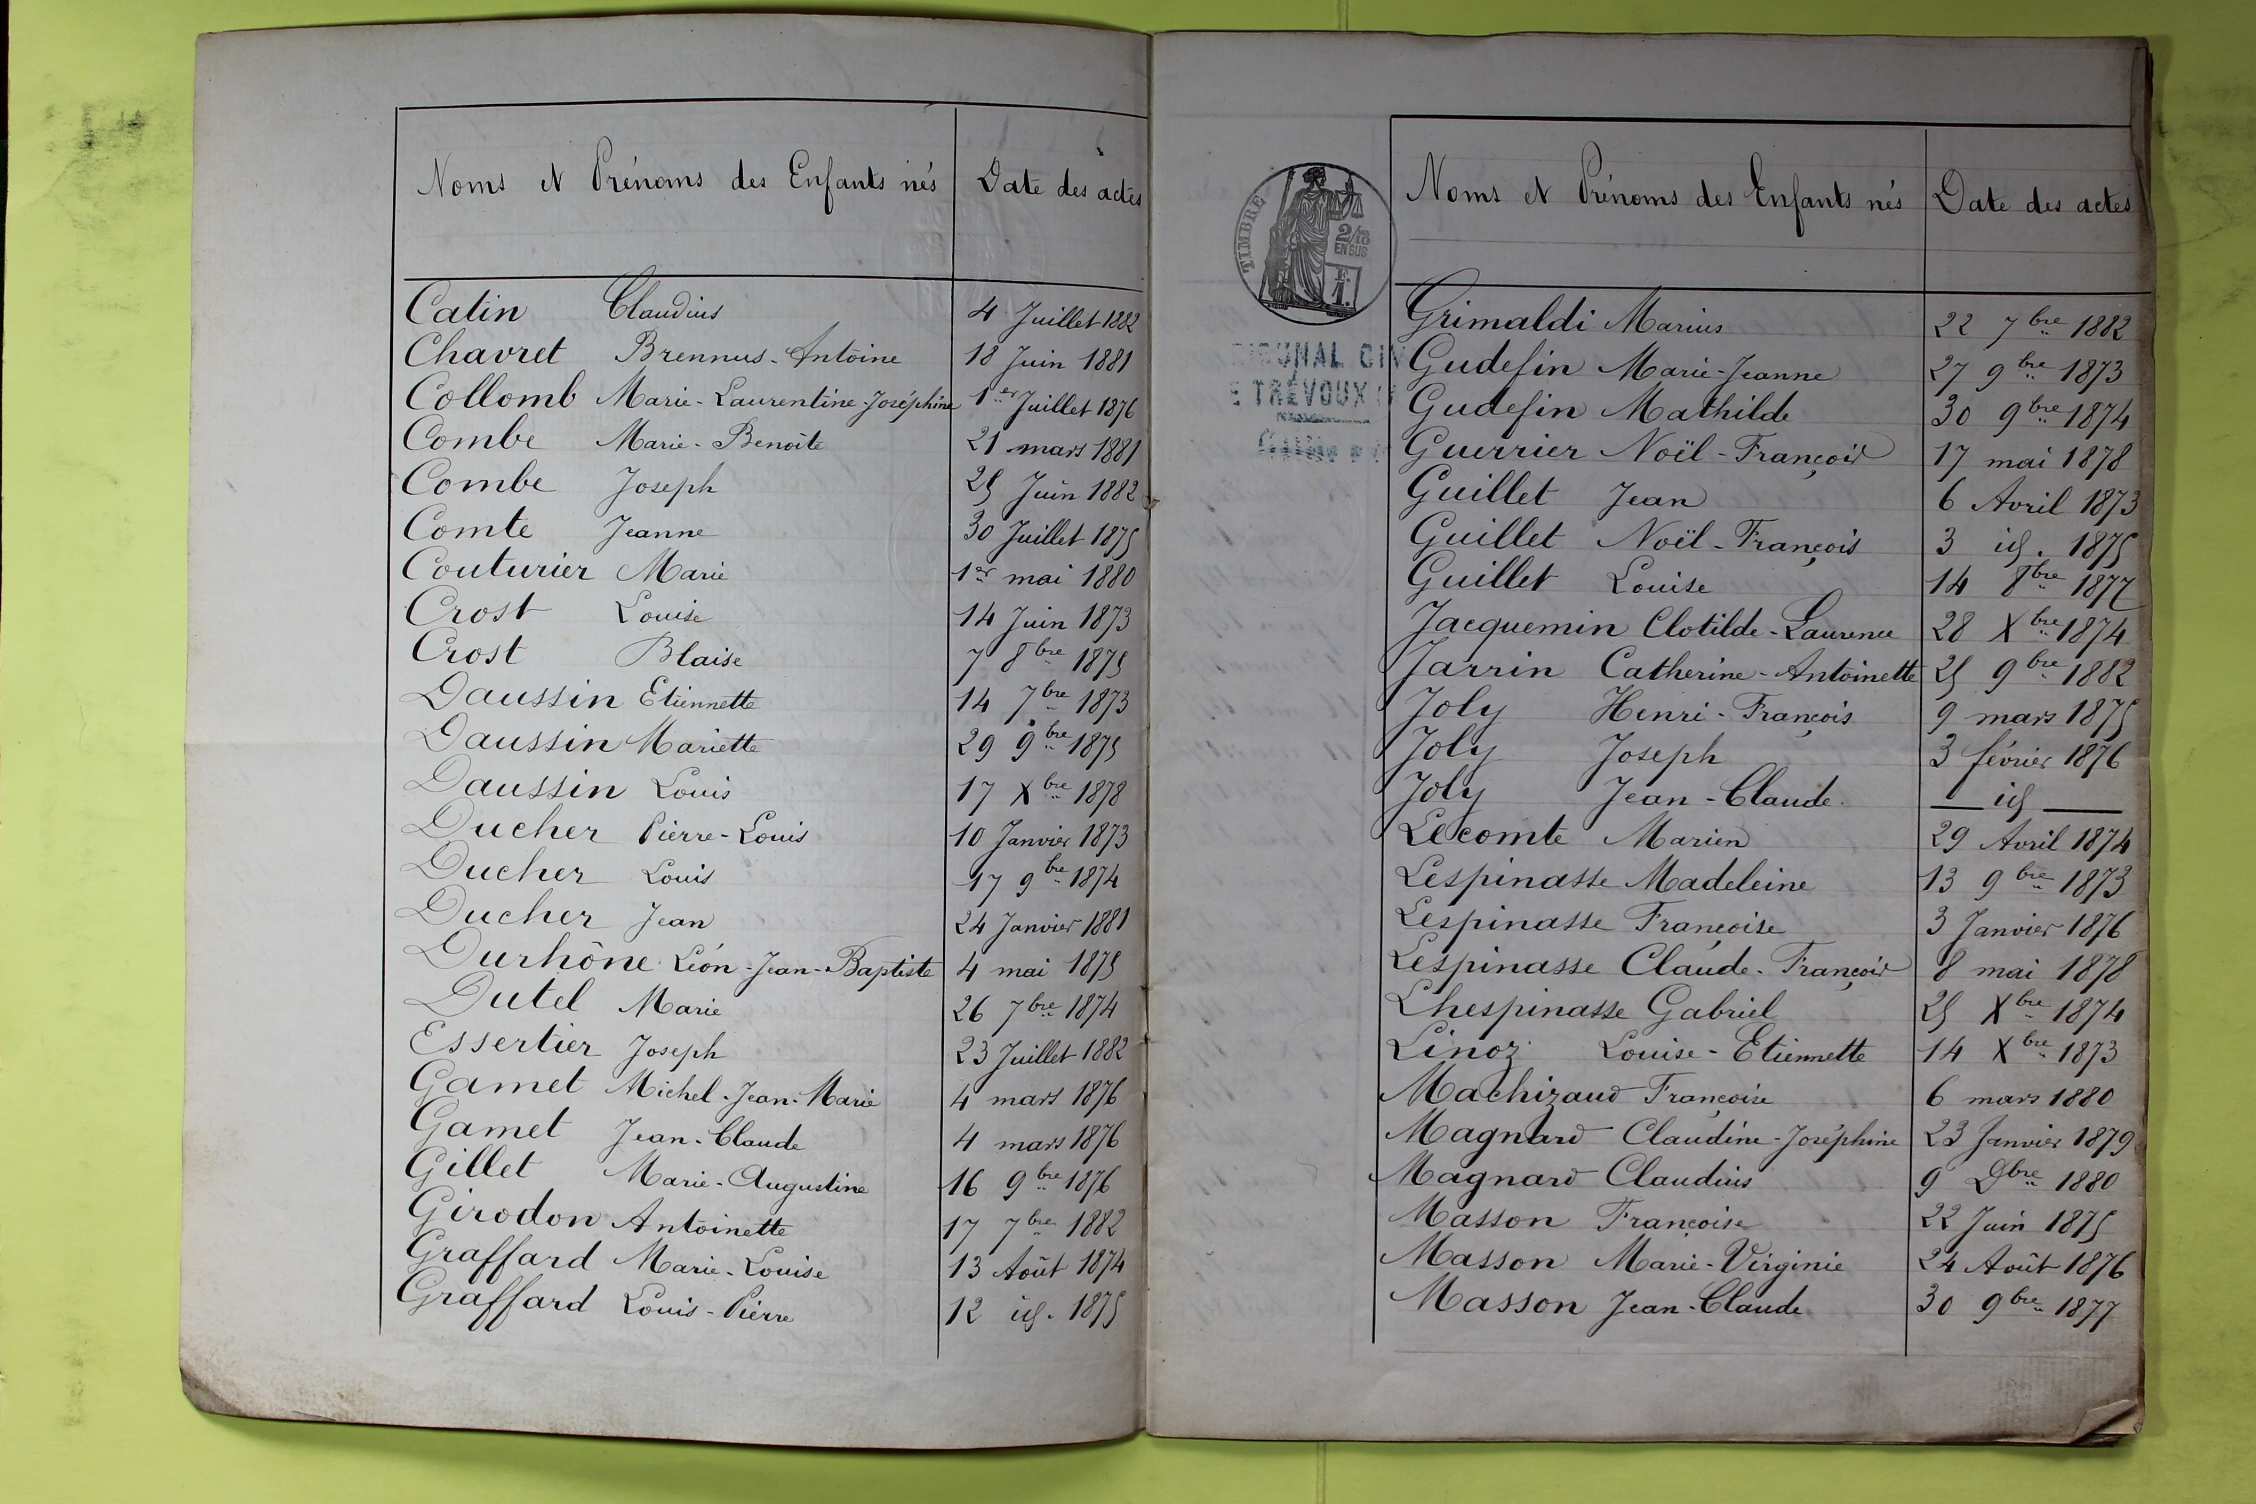 Noms et Prénoms des Enfants nés Date des actes
Catin Claudius 4 Juillet 1882
Chavret Brennus-Antoine 18 Juin 1881
Collomb Marie-Laurentine-Joséphine 1er Juillet 1876
Combe Marie-Benoite 21 mars 1881
Combe Joseph 25 Juin 1882
Comte Jeanne 30 Juillet 1875
Couturier Marie 1er mai 1880
Crost Louise 14 Juin 1873
Crost Blaise 7 8bre 1875
Daussin Etiennette 14 7bre 1873
Daussin Mariette 29 9bre 1875
Daussin Louis 17 Xbre 1878
Ducher Pierre-Louis 10 Janvier 1873
Ducher Louis 17 9bre 1874
Ducher Jean 24 Janvier 1881
Durhône Léon-Jean-Baptiste 4 mai 1875
Dutel Marie 26 7bre 1874
Essertier Joseph 23 Juillet 1882
Gamet Michel-Jean-Marie 4 mars 1876
Gamet Jean-Claude 4 mars 1876
Gillet Marie-Augustine 16 9bre 1876
Girodon Antoinette 17 7bre 1882
Graffard Marie-Louise 13 Août 1874
Graffard Louis-Pierre 12 id. 1875
TIMBRE
2/10
EN SUS
F
1.
TRIBUNAL CIV
E TRÉVOUX
Noms et Prénoms des Enfants nés Date des actes
Grimaldi Marius 22 7bre 1882
Gudefin Marie-Jeanne 27 9bre 1873
Gudefin Mathilde 30 9bre 1874
Guerrier Noël-François 17 mai 1878
Guillet Jean 6 Avril 1873
Guillet Noël-François 3 id. 1875
Guillet Louise 14 8bre 1877
Jacquemin Clotilde-Laurence 28 Xbre 1874
Jarrin Catherine-Antoinette 25 9bre 1882
Joly Henri-François 9 mars 1875
Joly Joseph 3 février 1876
Joly Jean-Claude — id —
Lecomte Marien 29 Avril 1874
Lespinasse Madeleine 13 9bre 1873
Lespinasse Françoise 3 Janvier 1876
Lespinasse Claude-François 8 mai 1878
Lhespinasse Gabriel 25 Xbre 1874
Linoz Louise-Etiennette 14 Xbre 1873
Machizaud Françoise 6 mars 1880
Magnard Claudine-Joséphine 23 Janvier 1879
Magnard Claudius 9 Dbre 1880
Masson Françoise 22 Juin 1875
Masson Marie-Virginie 24 Août 1876
Masson Jean-Claude 30 9bre 1877